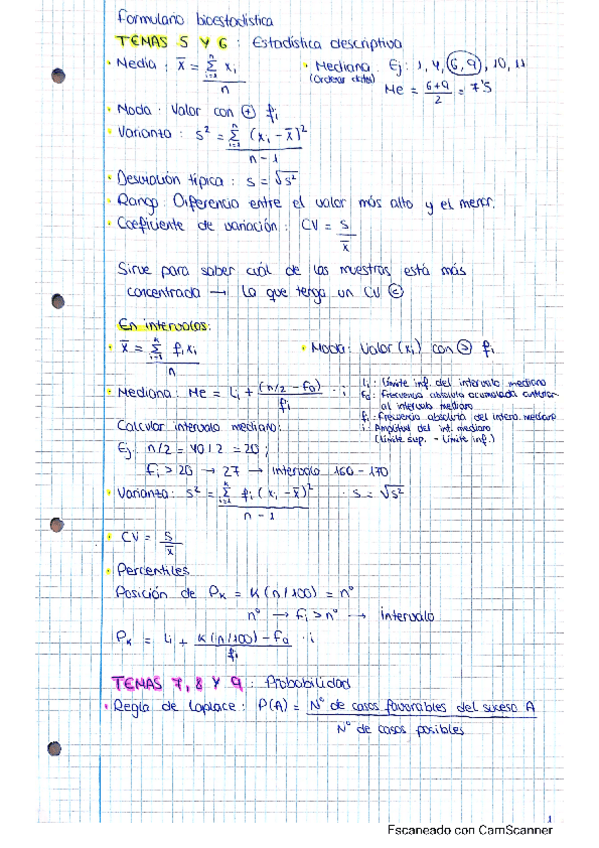 Formulario bioestadística
TEMAS 5 Y 6 : Estadística descriptiva
· Media : x̄ = Σ xi / n
· Mediana. Ej: 1, 4, (6, 9), 10, 11
(Ordenar datos)
Me = 6+9 / 2 = 7'5
· Moda : Valor con ⊕ fi
· Varianza : s² = Σ (xi - x̄)² / n - 1
· Desviación típica : s = √s²
· Rango : Diferencia entre el valor más alto y el menor.
· Coeficiente de variación : CV = s / x̄
Sirve para saber cuál de las muestras está más
concentrada → La que tenga un CV <
En intervalos:
· x̄ = Σ fi xi / n
· Moda : Valor (xi) con > fi
· Mediana : Me = Li + (n/2 - fa) / fi · i
Li : Límite inf. del intervalo mediano
fa : Frecuencia absoluta acumulada anterior
al intervalo mediano
fi : Frecuencia absoluta del interv. mediano
i : Amplitud del int. mediano
(Límite sup. - Límite inf.)
Calcular intervalo mediano:
Ej: n/2 = 40/2 = 20 ;
Fi > 20 → 27 → intervalo 160 - 170
· Varianza : s² = Σ fi (xi - x̄)² / n - 1 · s = √s²
· CV = s / x̄
· Percentiles
Posición de Pk = K (n/100) = nº
nº → Fi > nº → intervalo
Pk = Li + K(n/100) - Fa / fi · i
TEMAS 7, 8 Y 9 : Probabilidad
· Regla de Laplace : P(A) = Nº de casos favorables del suceso A / Nº de casos posibles
1
Escaneado con CamScanner